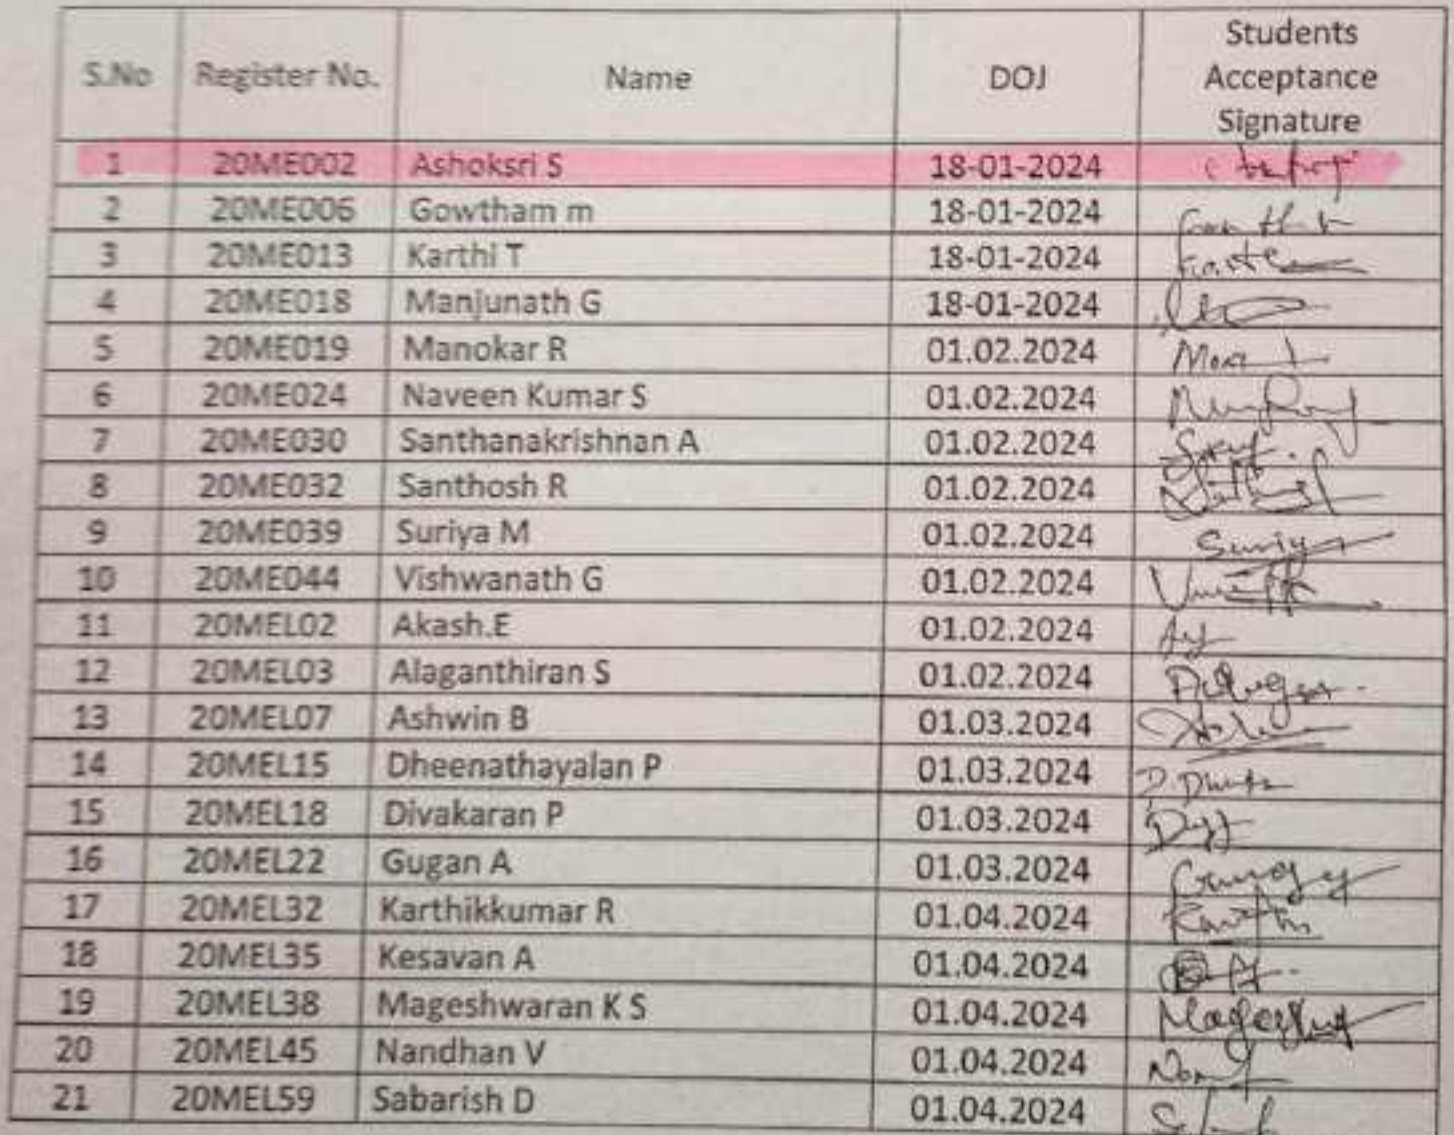 S.No Register No. Name DOJ Students Acceptance Signature
1 20ME002 Ashoksri S 18-01-2024
2 20ME006 Gowtham m 18-01-2024
3 20ME013 Karthi T 18-01-2024
4 20ME018 Manjunath G 18-01-2024
5 20ME019 Manokar R 01.02.2024
6 20ME024 Naveen Kumar S 01.02.2024
7 20ME030 Santhanakrishnan A 01.02.2024
8 20ME032 Santhosh R 01.02.2024
9 20ME039 Suriya M 01.02.2024 Suriya
10 20ME044 Vishwanath G 01.02.2024
11 20MEL02 Akash.E 01.02.2024
12 20MEL03 Alaganthiran S 01.02.2024
13 20MEL07 Ashwin B 01.03.2024
14 20MEL15 Dheenathayalan P 01.03.2024
15 20MEL18 Divakaran P 01.03.2024
16 20MEL22 Gugan A 01.03.2024
17 20MEL32 Karthikkumar R 01.04.2024
18 20MEL35 Kesavan A 01.04.2024
19 20MEL38 Mageshwaran K S 01.04.2024
20 20MEL45 Nandhan V 01.04.2024
21 20MEL59 Sabarish D 01.04.2024